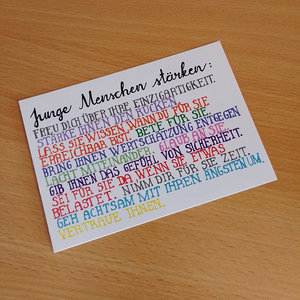 Junge Menschen stärken:
FREU DICH ÜBER IHRE EINZIGARTIGKEIT.
STÄRKE IHNEN DEN RÜCKEN.
LASS SIE WISSEN WANN DU FÜR SIE
ERREICHBAR BIST. BETE FÜR SIE.
BRING IHNEN WERTSCHÄTZUNG ENTGEGEN
LACHT MITEINANDER. GLAUBE AN SIE.
GIB IHNEN DAS GEFÜHL VON SICHERHEIT.
SEI FÜR SIE DA WENN SIE ETWAS
BELASTET. NIMM DIR FÜR SIE ZEIT.
GEH ACHTSAM MIT IHREN ÄNGSTEN UM.
VERTRAUE IHNEN.